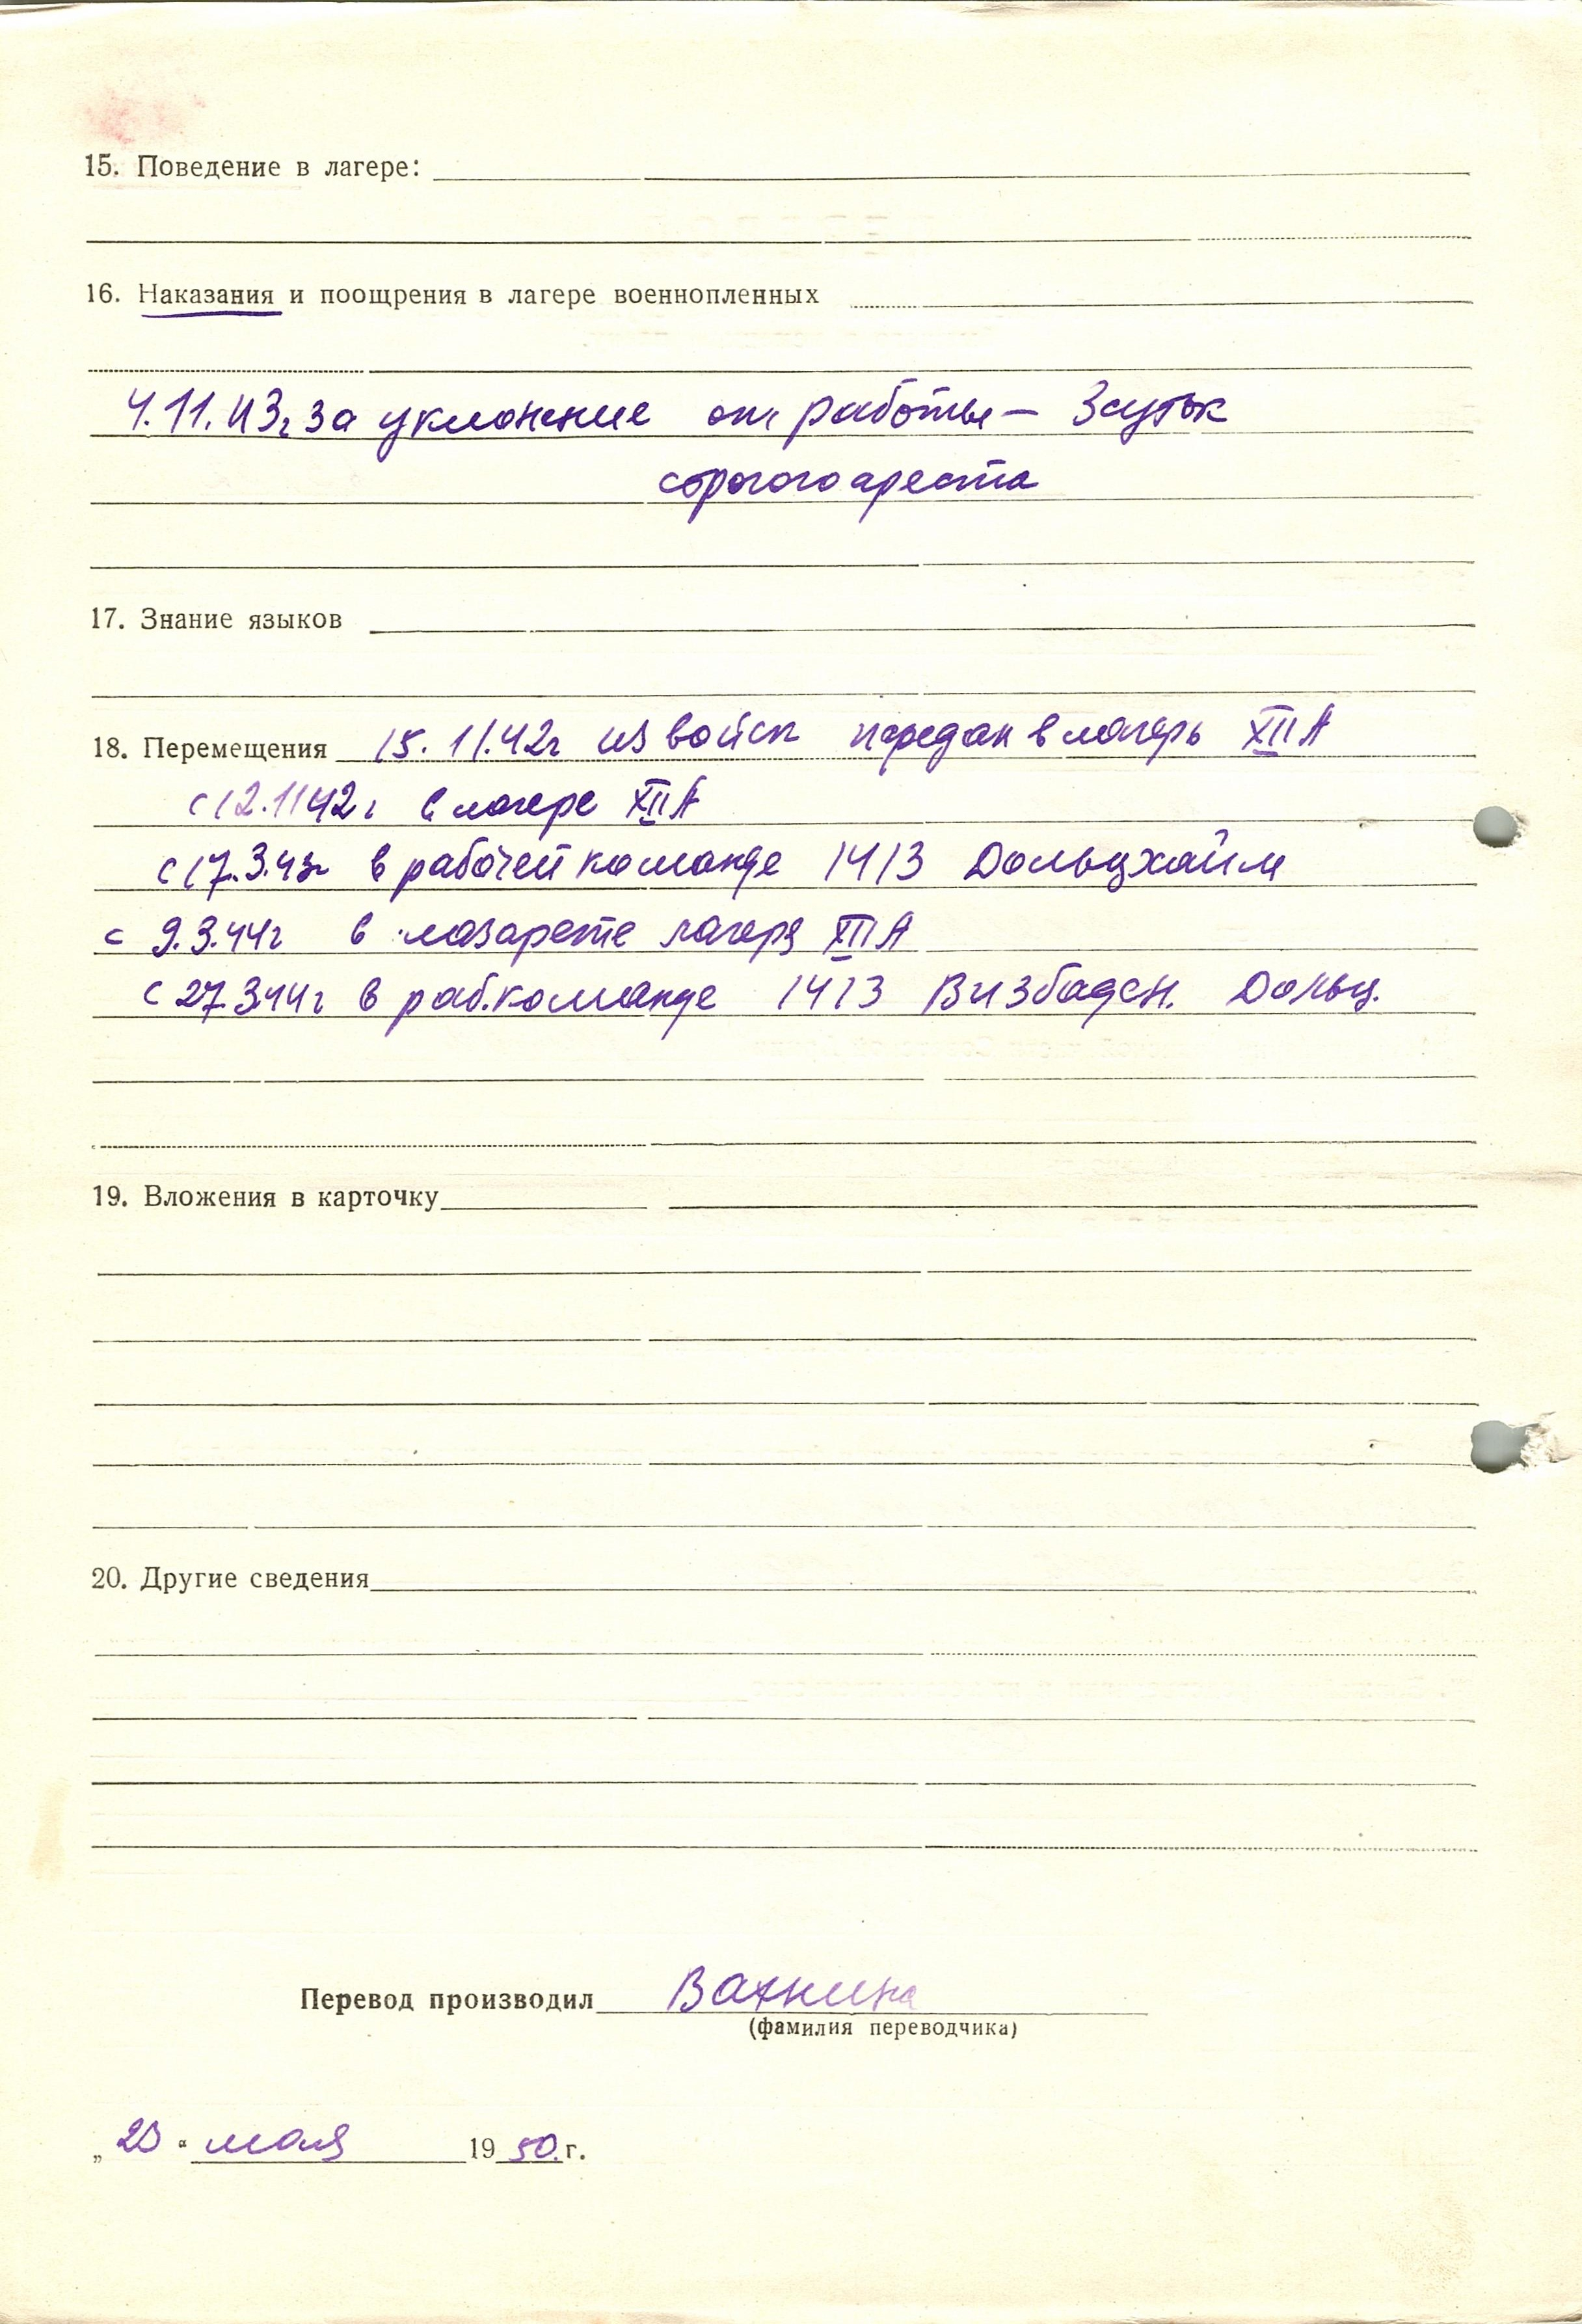 15. Поведение в лагере:
16. Наказания и поощрения в лагере военнопленных
4.11.43г за уклонение от работы — 3 суток
строгого ареста
17. Знание языков
18. Перемещения 15.11.42г из войск передан в лагерь XII А
с 12.11 42г в лагере XII А
с 17.3.43г в рабочей команде 1413 Дольцхайм
с 9.3.44г в лазарете лагеря XII А
с 27.3.44г в раб.команде 1413 Визбаден. Дольц.
19. Вложения в карточку
20. Другие сведения
Перевод производил Вахнина
(фамилия переводчика)
„ “ мая 1950.г.